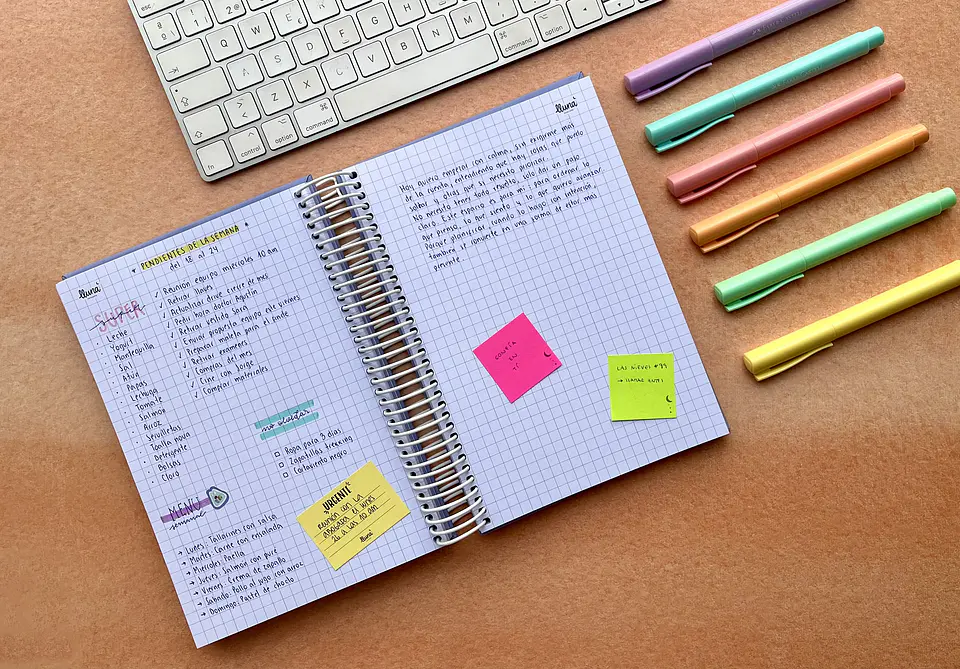 esc
1
2
Q
W
E
€
G
H
K
L
A
S
D
F
Z
X
C
V
B
N
M
fn
control
option
command
command
option
control
lluna
* PENDIENTES DE LA SEMANA *
del 18 al 24
✓ Reunión equipo miércoles 10 am
✓ Retirar llaves
✓ Actualizar drive cierre de mes
✓ Pedir hora doctor Agustín
✓ Retirar vestido Sara
✓ Enviar propuesta equipo este viernes
✓ Preparar maleta para el finde
✓ Retirar exámenes
✓ Compras del mes
✓ Cine con Jorge
✓ Comprar materiales
SUPER
· Leche
· Yogurt
· Mantequilla
· Sal
· Atún
· Papas
· Lechuga
· Tomate
· Salmón
· Arroz
· Servilletas
· Toalla nova
· Detergente
· Bolsas
· Cloro
no olvidar
□ Ropa para 3 días
□ Zapatillas trekking
□ Cortaviento negro
MENÚ
semanal
→ Lunes: Tallarines con salsa
→ Martes: Carne con ensalada
→ Miércoles: Paella
→ Jueves: Salmón con puré
→ Viernes: Crema de zapallo
→ Sábado: Pollo al jugo con arroz
→ Domingo: Pastel de choclo
¡URGENTE!
Reunión con la
abogados el lunes
26 a las 10 am
lluna
lluna
Hoy quiero empezar con calma, sin exigirme más
de la cuenta, entendiendo que hay cosas que puedo
soltar y otras que sí necesito priorizar.
No necesito tener todo resuelto, solo dar un paso
claro. Este espacio es para mí: para ordenar lo
que pienso, lo que siento y lo que quiero avanzar.
Porque planificar cuando lo hago con intención,
también se convierte en una forma de estar más
presente.
CONFÍA
EN
TI
LAS NIEVES #
→ LLAMAR